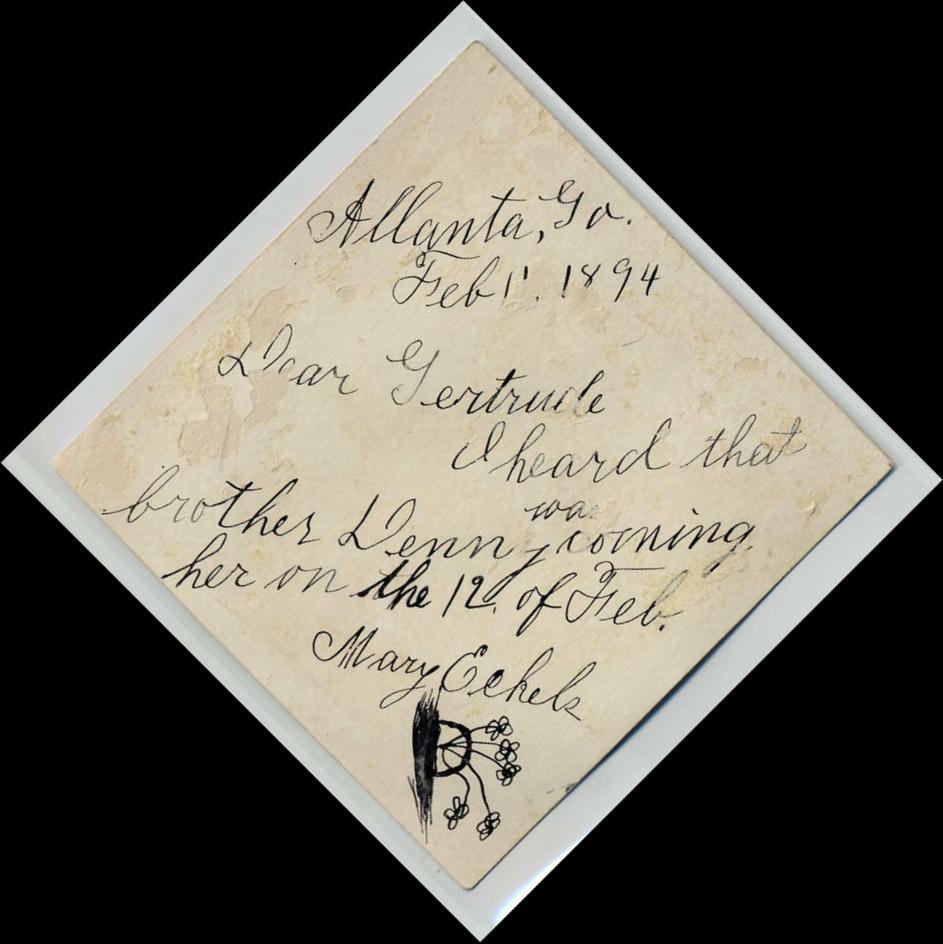 Atlanta, Ga.
Feb 1'. 1894
Dear Gertrude
I heard that
was
brother Denny coming
her on the 12. of Feb.
Mary Eckels